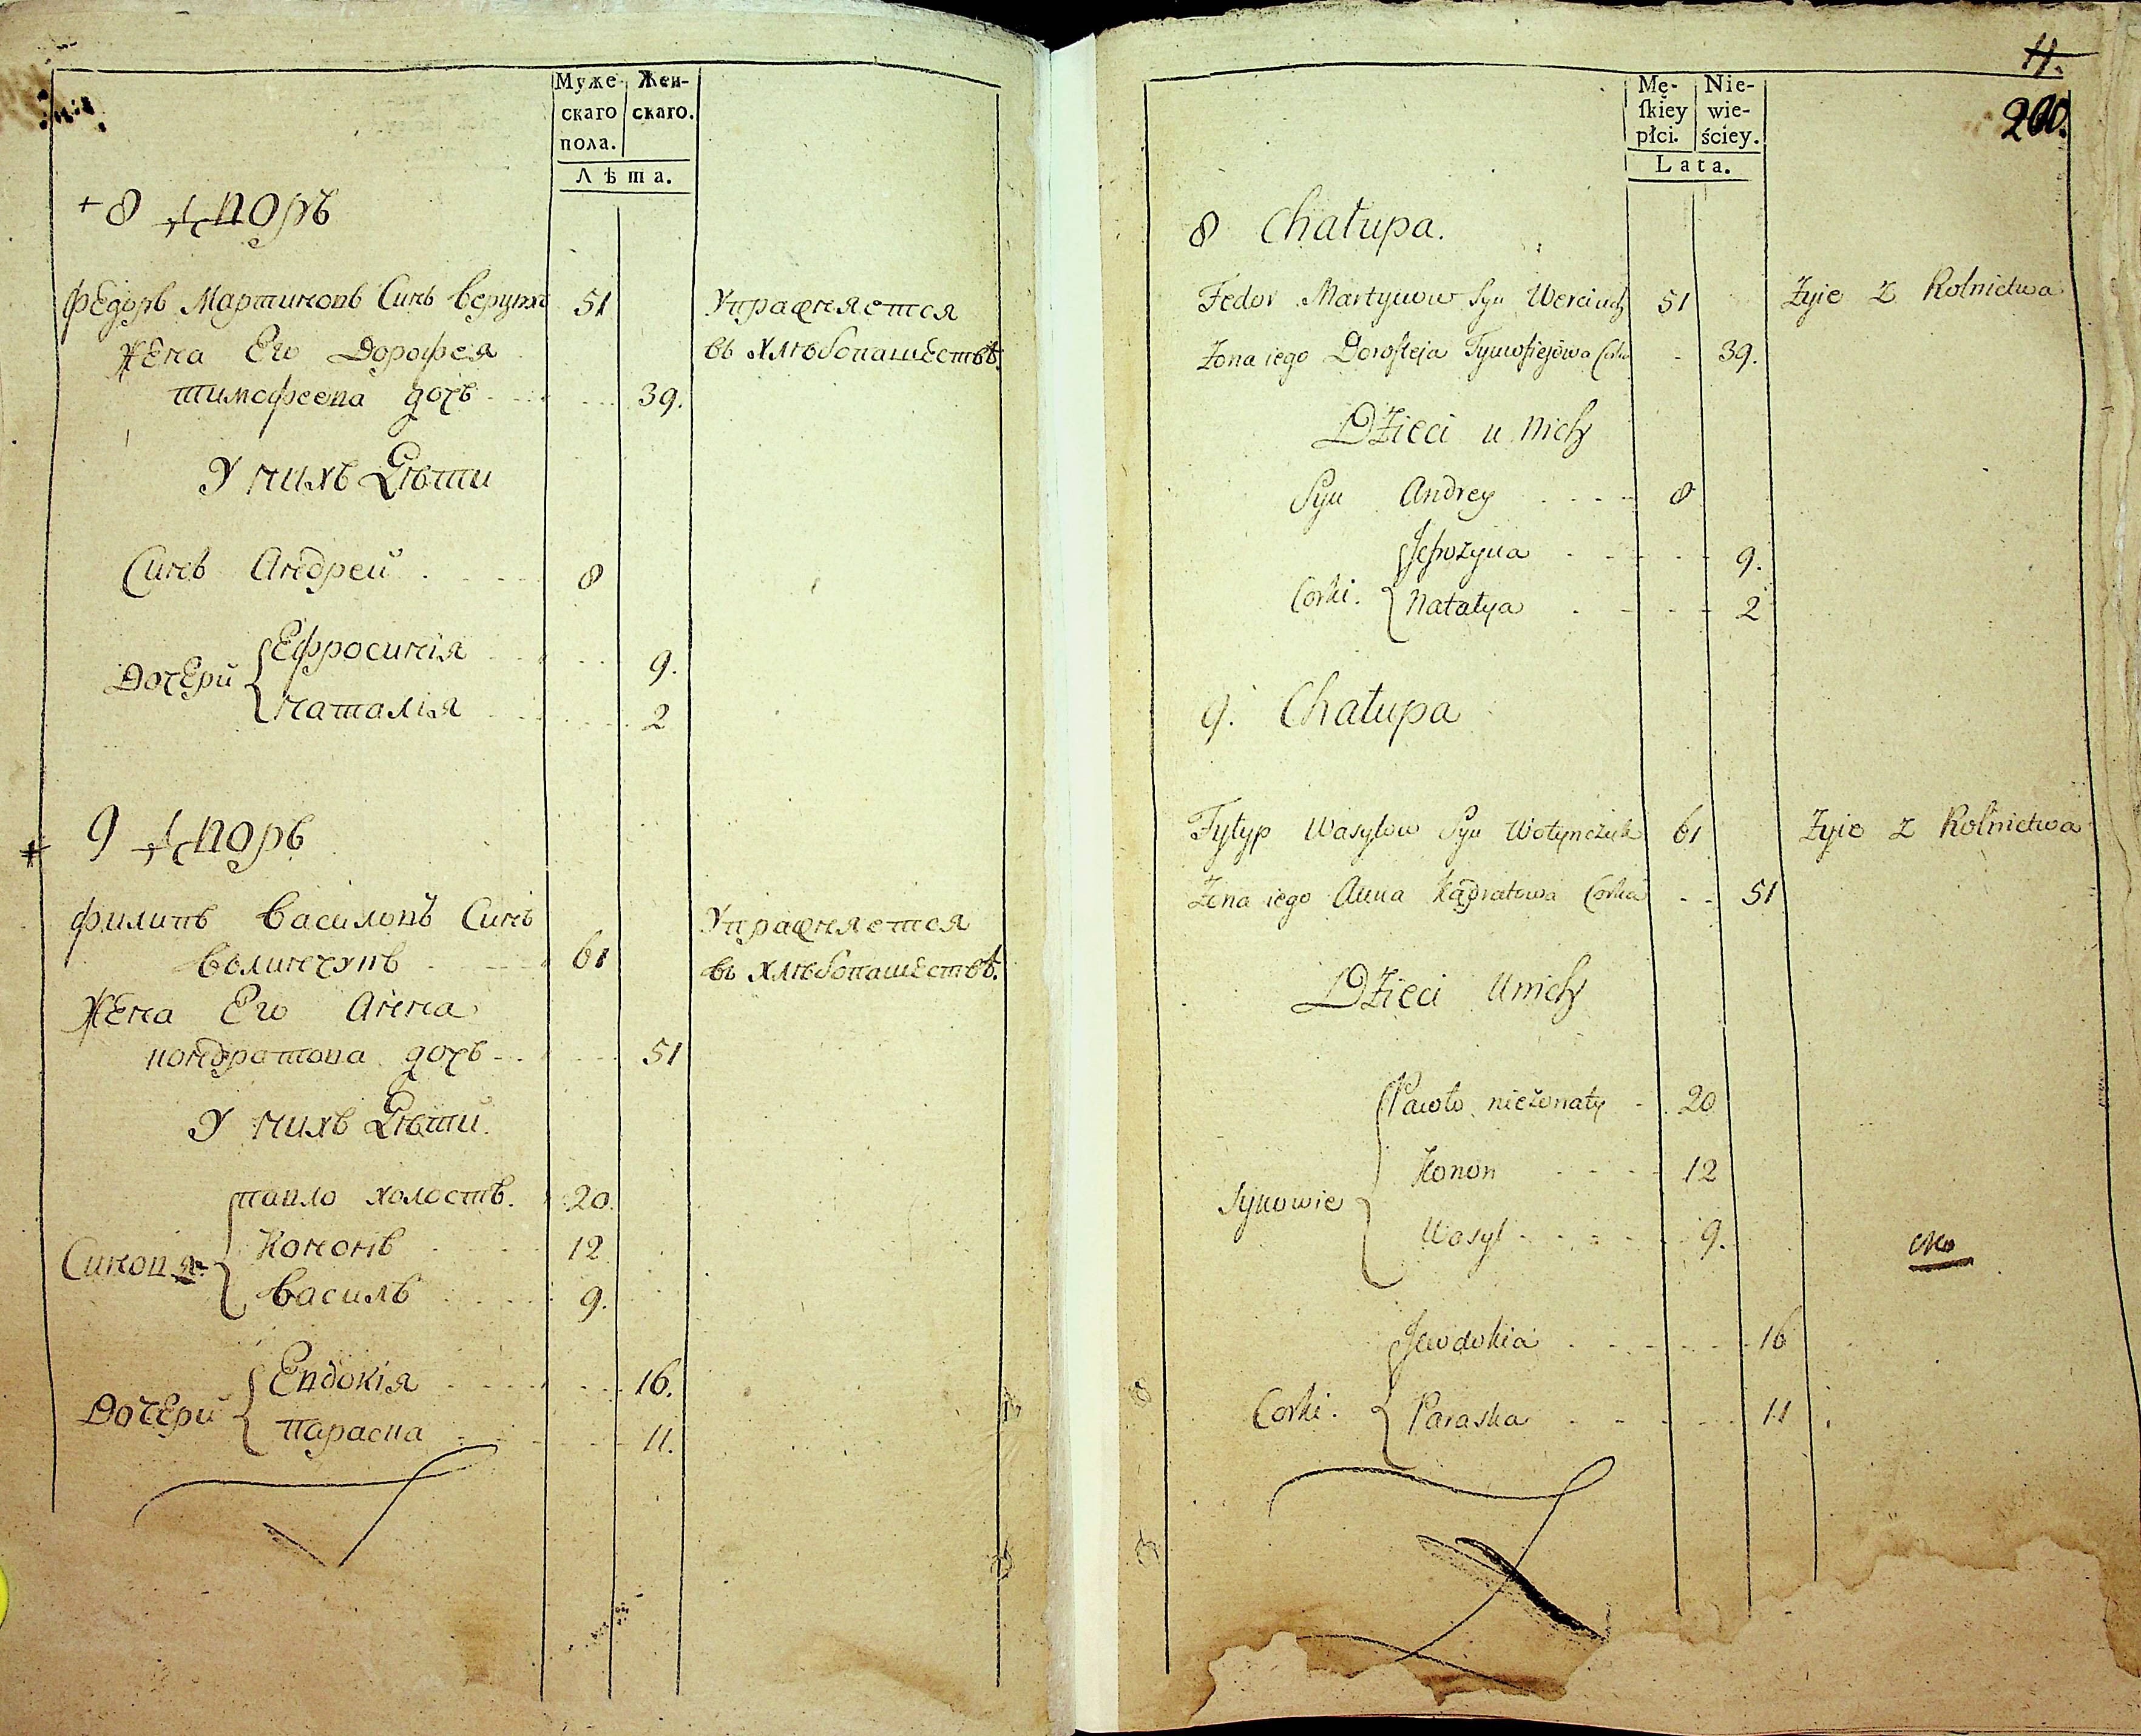 Муже-
скаго
пола.
Жен-
скаго.
Лѣта.
+ 8 Дворъ
Федоръ Мартиновъ Синъ 51 Упражняется
Жена Его Дорофея въ Хлѣбопашествѣ.
тимофеева дочь 39.
У нихъ Дѣти
Синъ Андрей 8
Дочери
Ефросинія 9.
Наталія 2
9 Дворъ
Филипъ Василовъ Синъ Упражняется
Волинчукъ 61 въ Хлѣбопашествѣ.
Жена Его Анна
кондратова дочь 51
У нихъ Дѣти.
Синовя
павло холостъ. 20.
Кононъ 12
Василь 9.
Дочери
Евдокія 16.
параска 11.
11.
200.
Mę-
ſkiey
płci.
Nie-
wie-
ściey.
Lata.
8 Chałupa.
Fedor Martynow Syn 51 Zyie z Rolnictwa
Zona iego Dorofteja Tymofiejowa Corka 39.
Dzieci u nich
Syn Andrey 8
Corki.
Jefrozyna 9.
Natalya 2
9. Chałupa
Fylyp Wasylow Syn Wołynczuk 61 Zyie z Rolnictwa
Zona iego Anna Kądratowa Corka 51
Dzieci u nich
Synowie
Pawło nieżonaty 20
Konon 12
Wasyl 9.
Corki.
Jewdokia 16
Paraska 11